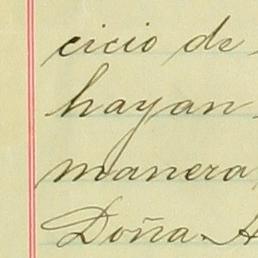 cicio de
hayan
manera
Doña A